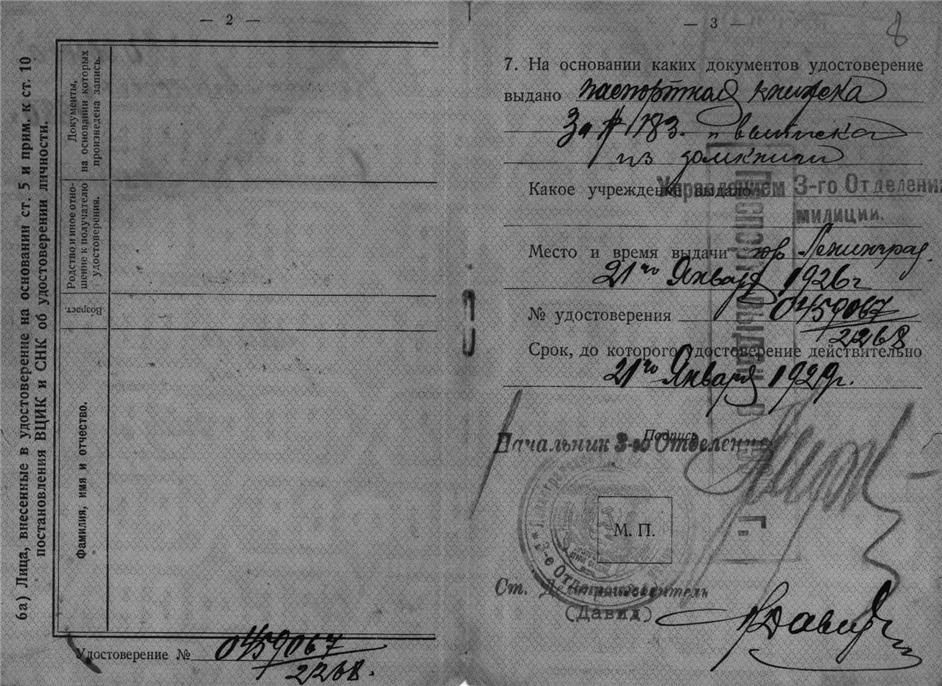 — 2 —
6а) Лица, внесенные в удостоверение на основании ст. 5 и прим. к ст. 10
постановления ВЦИК и СНК об удостоверении личности.
Фамилия, имя и отчество.
Возраст.
Родство и иное отно-
шение к получателю
удостоверения.
Документы,
на основании которых
произведена запись.
Удостоверение № 0459067
2268.
— 3 —
8
7. На основании каких документов удостоверение
выдано паспортная книжка
За № 1783. и выписка
из домкниги
Какое учреждение выдало
Управлением 3-го Отделения
милиции.
Место и время выдачи гор. Ленинград.
21го Января 1926 г
№ удостоверения 0459067
2268
Срок, до которого удостоверение действительно
21го Января 1929 г.
Подпись
Начальник 3-го Отделение
М. П.
3-е Отделение
Ст. Делопроизводитель
(Давид)
Давид